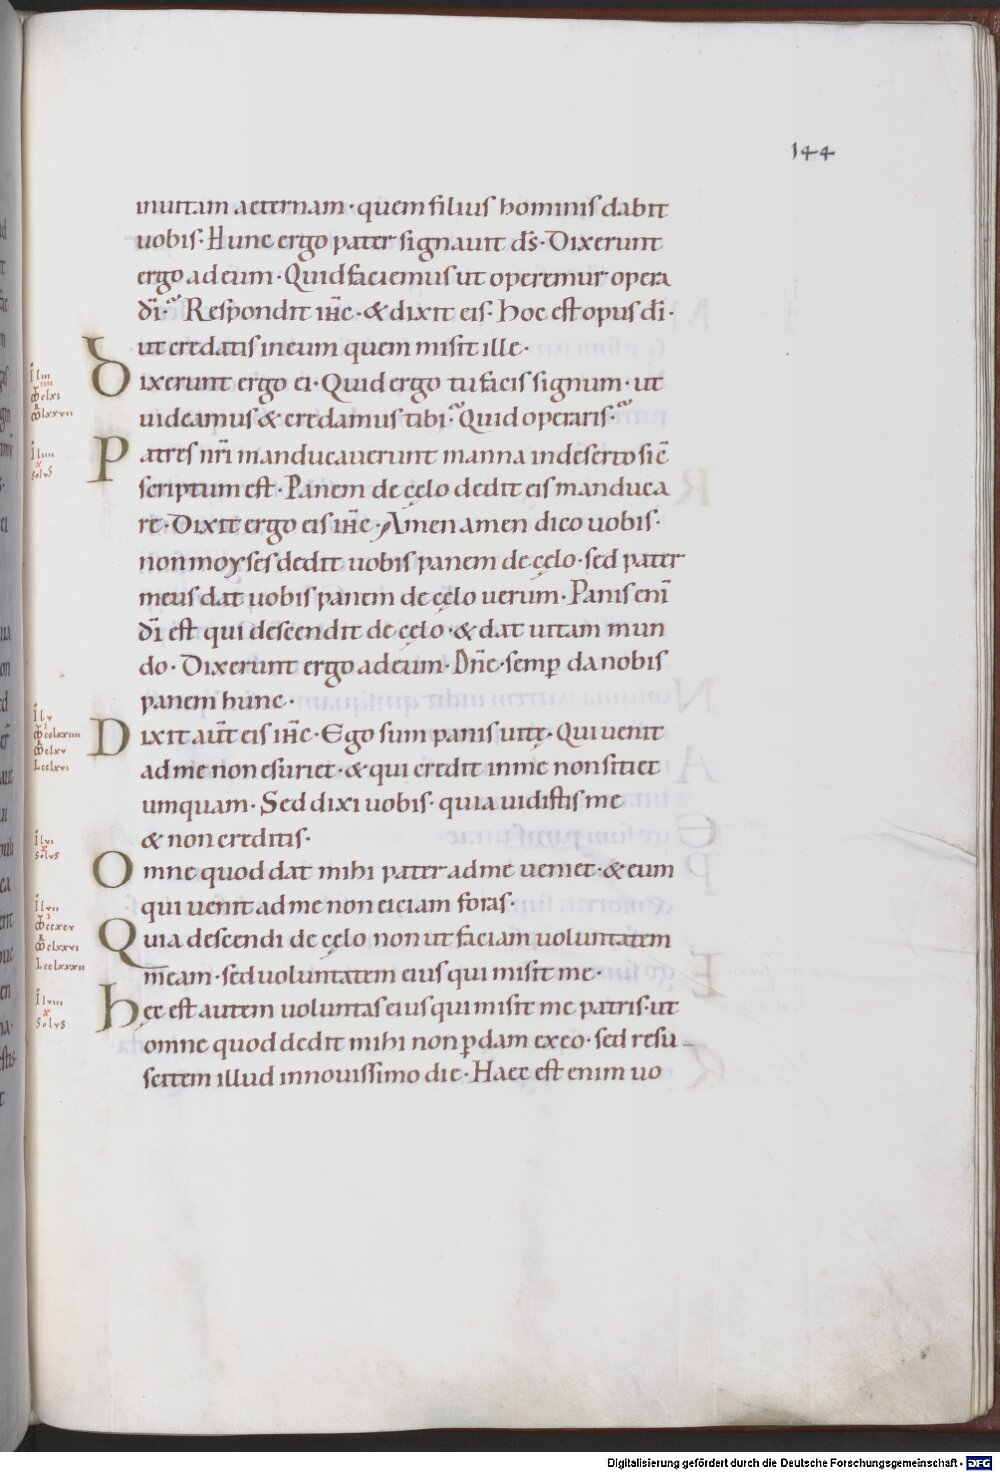 144
inuitam aeternam · quem filius hominis dabit
uobis · Hunc ergo pater signauit d̅s · Dixerunt
ergo adeum · Quid faciemus ut operemur opera
d̅i · Respondit ih̅c · & dixit eis · hoc est opus d̅i ·
ut credatis ineum quem misit ille ·
Dixerunt ergo ei · Quid ergo tu facis signum · ut
uideamus & credamus tibi · Quid operaris ·
Patres nr̅i manducauerunt manna indeserto sic̅
scriptum est · Panem de cęlo dedit eis manduca
re · Dixit ergo eis ih̅c · Amen amen dico uobis ·
non moyses dedit uobis panem de cęlo · sed pater
meus dat uobis panem de cęlo uerum · Panis eni̅
d̅i est qui descendit de cęlo · & dat uitam mun
do · Dixerunt ergo adeum · Dn̅e · semꝑ da nobis
panem hunc ·
Dixit aut̅ eis ih̅c · Ego sum panis uitę · Qui uenit
adme non esuriet · & qui credit inme non sitiet
umquam · Sed dixi uobis · quia uidistis me
& non creditis ·
Omne quod dat mihi pater adme ueniet · & eum
qui uenit adme non eiciam foras ·
Quia descendi de cęlo non ut faciam uoluntatem
meam · sed uoluntatem eius qui misit me ·
hęc est autem uoluntas eius qui misit me patris · ut
omne quod dedit mihi non ꝑdam ex eo · sed resu
scitem illud innouissimo die · Haec est enim uo
Digitalisierung gefördert durch die Deutsche Forschungsgemeinschaft - DFG